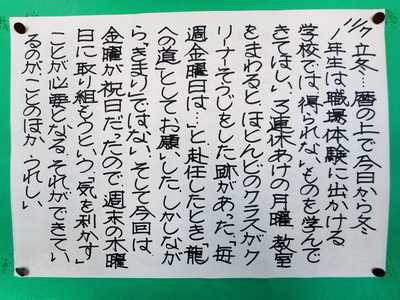 11/7 立冬…暦の上で今日から冬
1年生は職場体験に出かける
学校では、得られないものを学んで
きてほしい。3連休あけの月曜、教室
をまわると、ほとんどのクラスがク
リーナーそうじをした跡があった。「毎
週金曜日は…」と、赴任したとき「龍
への道」としてお願いした。しかしなが
ら「きまり」ではない。そして今回は、
金曜が祝日だったので、週末の木曜
日に取り組もうという、「気を利かす」
ことが必要となる。それができてい
るのがことのほか、うれしい。